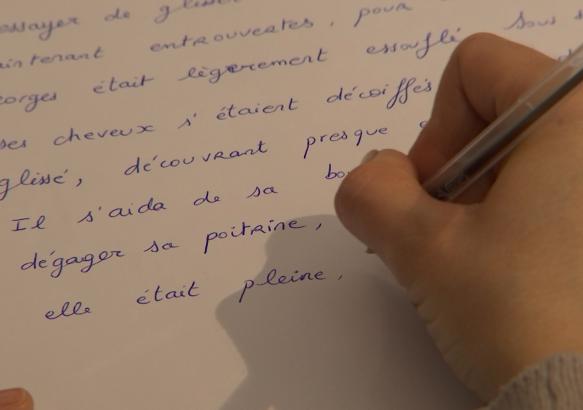 essayer de
maintenant entrouvertes, pour
Georges était légèrement essouflé sous
ses cheveux s'étaient décoiffés
glissé, découvrant presque
Il s'aida de sa
dégager sa poitrine,
elle était pleine,